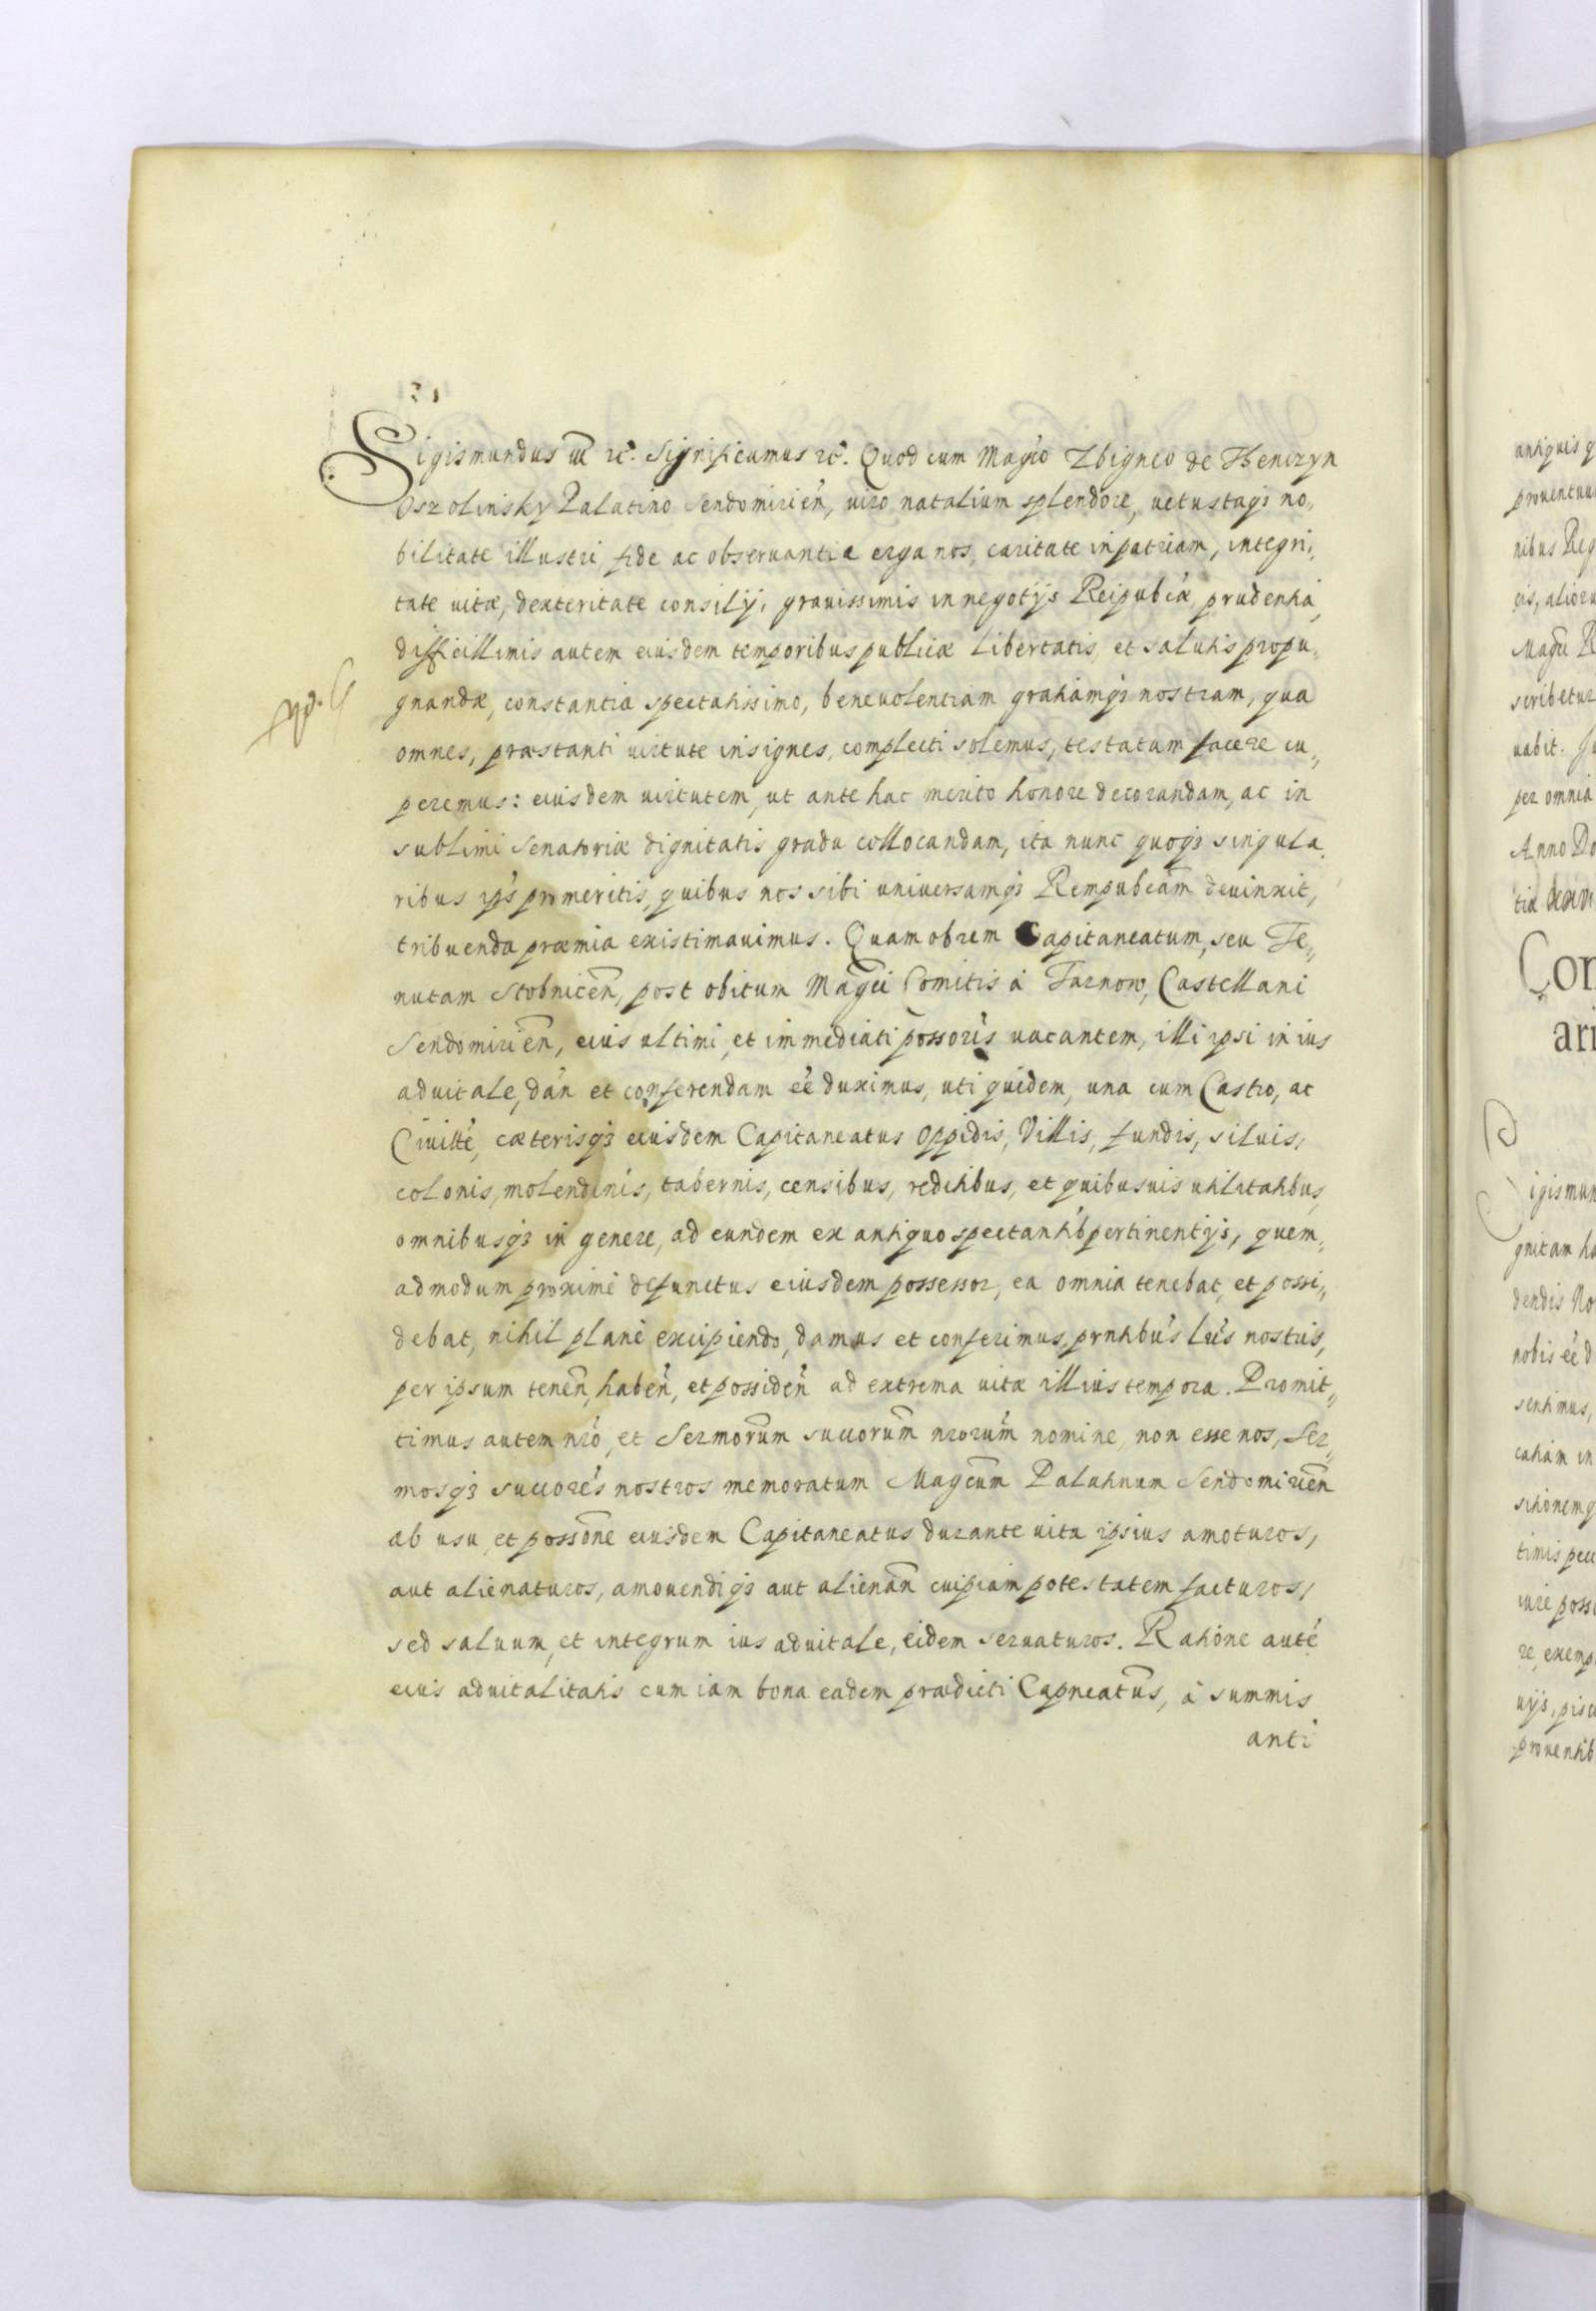 Sigismundus III rc. Significamus rc. Quod cum Magco Zbigneo de Thenczyn
Oszolinsky Palatino Sendomirien, uiro natalium splendore, uetustaq3 no,,
bilitate illustri, fide ac obseruantia erga nos, caritate in patriam, integri,
tate uitæ, dexteritate consilij, grauissimis in negotijs Reipubcæ, prudentia,
difficillimis autem eiusdem temporibus publicæ libertatis, et salutis propu,,
gnandæ, constantia spectatissimo, beneuolentiam gratiamq3 nostram, qua
omnes, præstanti uirtute insignes, complecti solemus, testatam facere cu,,
peremus: eiusdem uirtutem, ut ante hac merito honore decorandam, ac in
sublimi Senatoriæ dignitatis gradu collocandam, ita nunc quoq3 singula,
ribus ips promeritis, quibus nos sibi uniuersamq3 Rempubcam deuinxit,
tribuenda præmia existimauimus. Quamobrem Capitaneatum, seu Te,,
nutam Stobnicen, post obitum Magci Comitis à Tarnow, Castellani
Sendomirien, eius ultimi, et immediati possoris uacantem, illi ipsi in ius
aduitale, dan et conferendam eé duximus, uti quidem, una cum Castro, ac
Ciuitte, cæterisq3 eiusdem Capitaneatus oppidis, Villis, fundis, siluis,
colonis, molendinis, tabernis, censibus, reditibus, et quibusuis utilitatibus,
omnibusq3 in genere, ad eundem ex antiquo spectantib pertinentijs, quem,,
admodum proximè defunctus eiusdem possessor, ea omnia tenebat, et possi,,
debat, nihil planè excipiendo, damus et conferimus, prntibus lris nostris,
per ipsum tenen, haben, et possiden ad extrema uitæ illius tempora. Promit,,
timus autem nro, et Sermorum succorum nrorum nomine, non esse nos, Ser,,
mosq3 succores nostros memoratum Magcum Palatinum Sendomirien
ab usu, et possone eiusdem Capitaneatus durante uita ipsius amoturos,
aut alienaturos, amouendiq3 aut alienan cuipiam potestatem facturos,
sed saluum, et integrum ius aduitale, eidem seruaturos. Ratione auté
eius aduitalitatis cum iam bona eadem prædicti Capneatus, à summis
anti